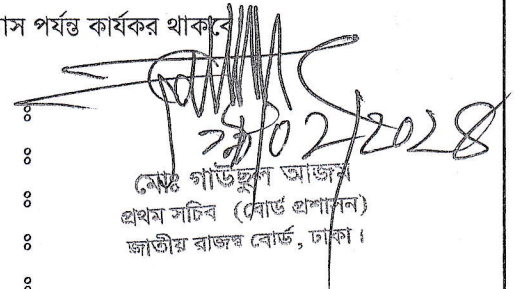 াস পর্যন্ত কার্যকর থাকবে
ঃ
/০২/২০২৪
ঃ
মোঃ গাউছুল আজম
ঃ
প্রথম সচিব (বোর্ড প্রশাসন)
ঃ
জাতীয় রাজস্ব বোর্ড, ঢাকা।
ঃ